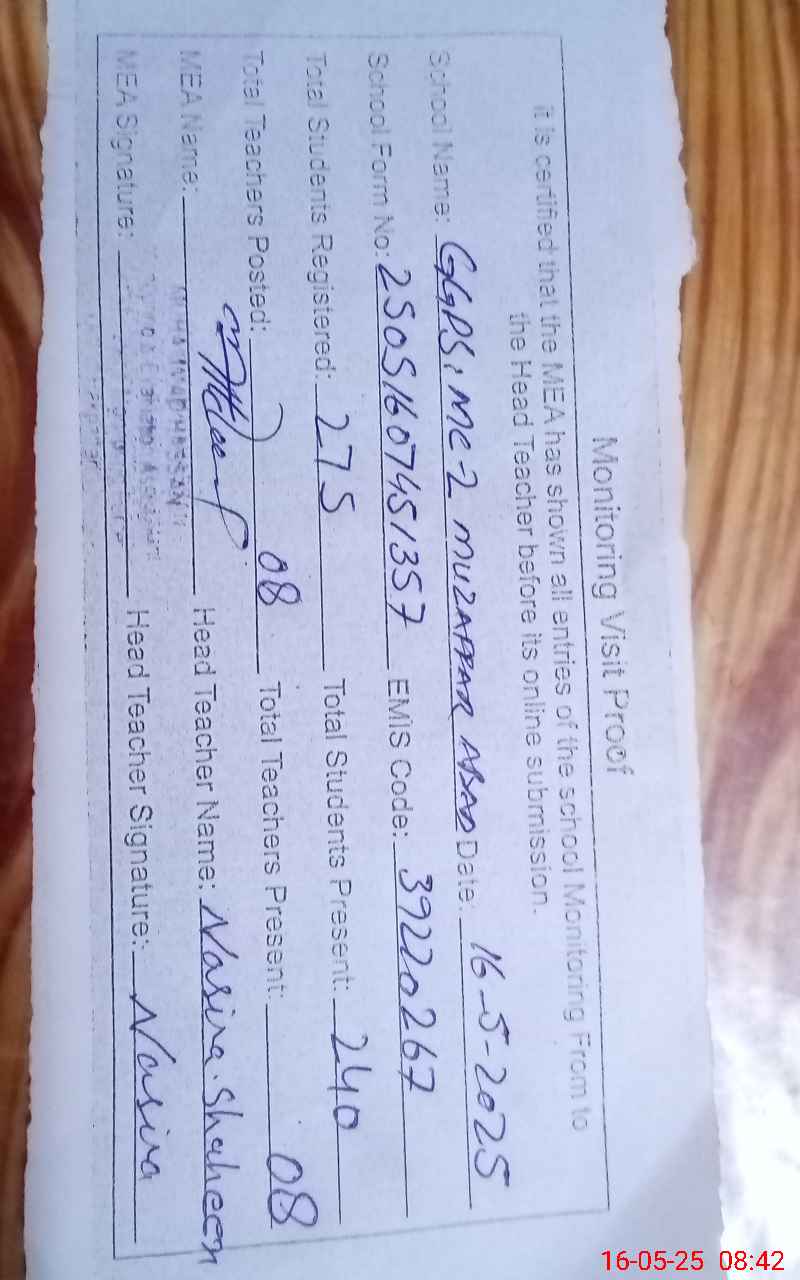 Monitoring Visit Proof
it is certified that the MEA has shown all entries of the school Monitoring From to
the Head Teacher before its online submission.
School Name: GGPS, MC-2 MUZAFFAR ABAD Date: 16-5-2025
School Form No: 25051607451357 EMIS Code: 39220267
Total Students Registered: 275 Total Students Present: 240
Total Teachers Posted: 08 Total Teachers Present: 08
MEA Name: Head Teacher Name: Nasira Shaheen
MEA Signature: Head Teacher Signature: Nasira
16-05-25 08:42